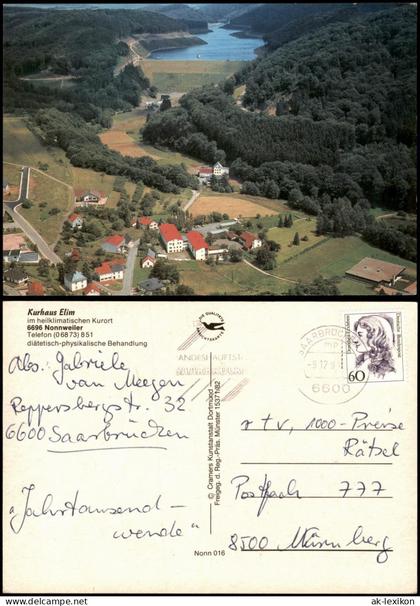 Kurhaus Elim
im heilklimatischen Kurort
6696 Nonnweiler
Telefon (06873) 851
diätetisch-physikalische Behandlung
Abs: Gabriele
van Meegen
Reppersbergstr. 32
6600 Saarbrücken
"Jahrtausend-
wende"
© Cramers Kunstanstalt Dortmund
Freigeg. d. Reg.-Präs. Münster 15371/82
Nonn 016
LANDESHAUPTST.
SAARBRÜCKEN
6600
Deutsche Bundespost
60
rtv, 1000-Preise
Rätsel
Postfach 777
8500 Nürnberg
www.ak-lexikon.de
© ak-lexikon.de